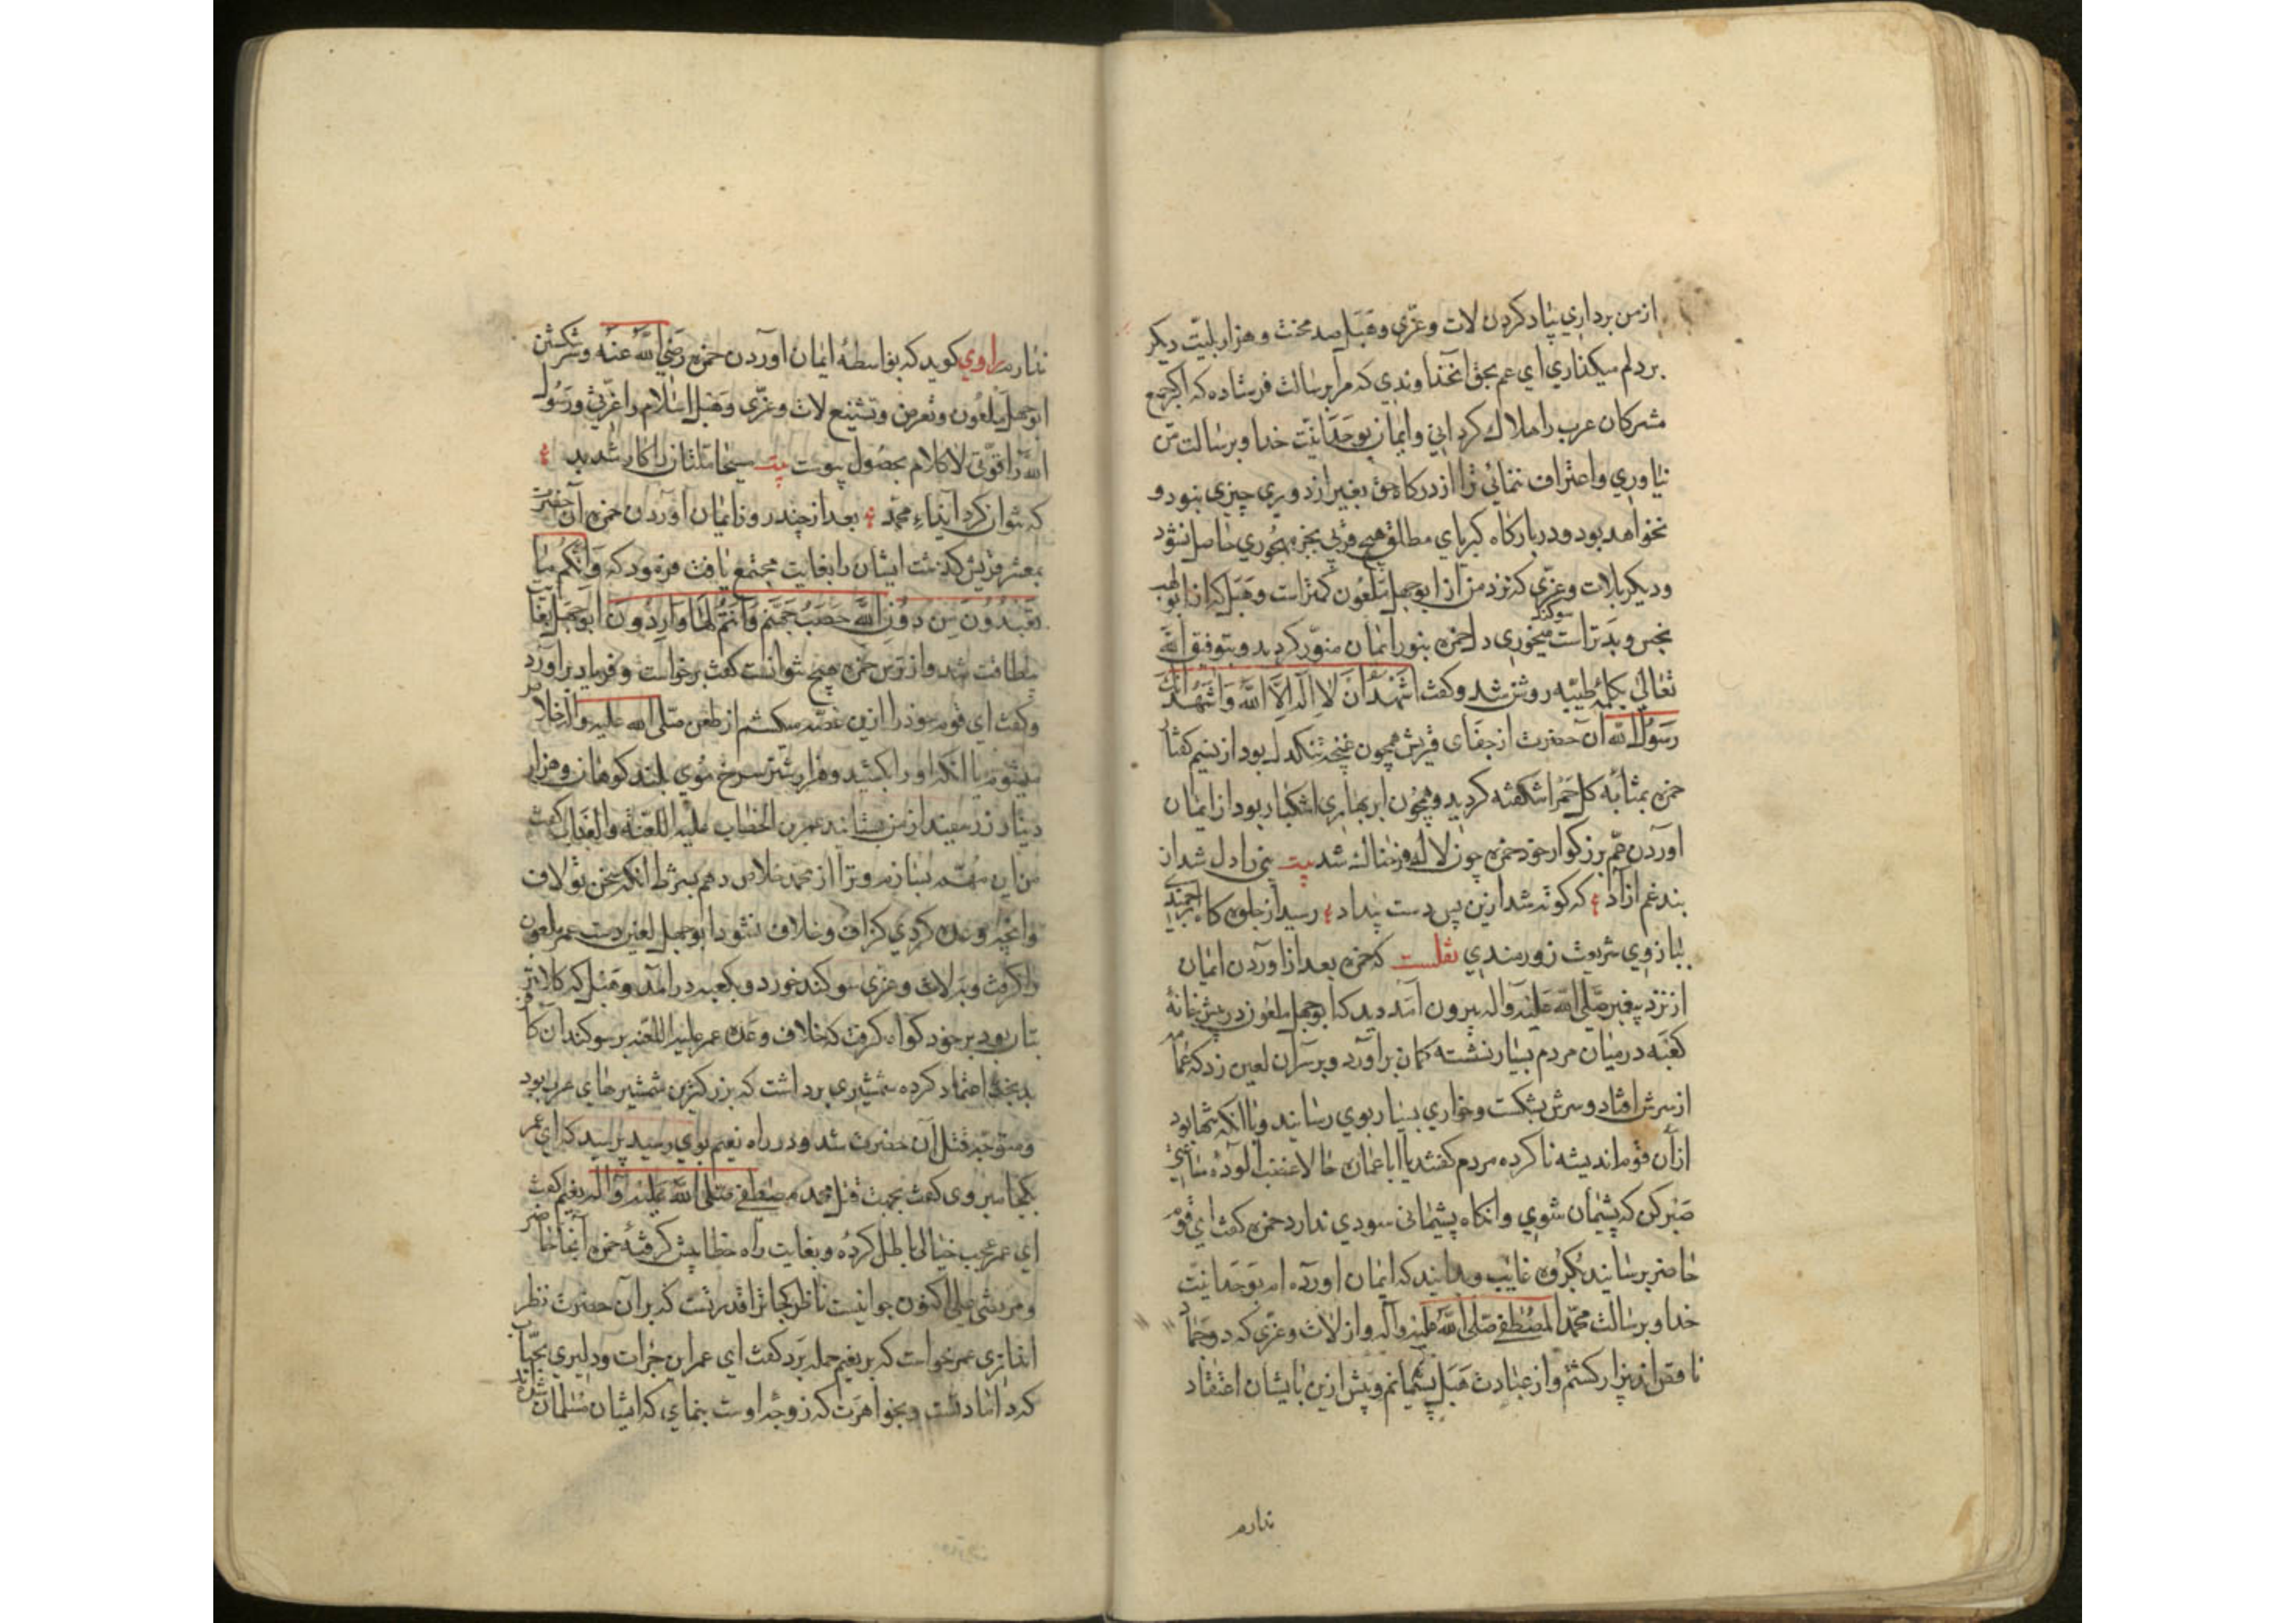 ازمن برداري بیاد کردن لات و عزّی و هبل صد محنت و هزار بلیّت دیکر
بر دلم میکذاري ای عم بحق آنخداوندي که مرا برسالت فرستاده که اکر جمیع
مشرکان عرب را هلاك کرداني و ایمان بوحدانیّت خدا و برسالت من
نیاوري و اعتراف ننمائي ترا از درکاه حق بغیر از دوري چیزي نبود و
نخواهد بود و در بارکاه کبریاي مطلق هیچ قربي بجز مهجوري حاصل نشود
و دیکر بلات و عزّي که نزد من از ابوجهل ملعون کمتر است و هبل که از ابولهب
نجس و بدتر است سوکند میخوري دل حمزه بنور ایمان منوّر کردید و بتوفیق الله
تعالي بکلمهٔ طیّبه روشن شد و کفت اشهد ان لا اله الا الله و اشهد انك
رسول الله آن حضرت از جفاي قریش همچون غنچه تنکدل بود از نسیم کفتار
حمزه بمثابه کل حمرا شکفته کردید و همچون ابر بهاري اشکبار بود از ایمان
آوردن عم بزرکوار خود حمزه چون لاله فرحناك شد بیت نبي را دل شد از
بند غم ازاد ع که کوته شد ازین پس دست بیداد ع رسید از جلوه کاه ارجمندي
ببازوي شریعت زورمندي نقلست که حمزه بعد از اوردن ایمان
از نزد پیغمبر صلی الله علیه و اله بیرون آمد دید که ابوجهل ملعون در پیش خانهٔ
کعبه در میان مردم بسیار نشسته کمان براورد و بر سر آن لعین زد که عمامه
از سرش افتاد و سرش بشکست و خواري بسیار بوي رسانید و با انکه تنها بود
از آن قوم اندیشه نا کرده مردم کفتند یا اباعماره حالا غضب آلودهٔ ساعتي
صبر کن که پشیمان شوي و انکاه پشیمانی سودي ندارد حمزه کفت اي قوم
حاضر برسانید بکروه غایب و بدانید که ایمان اورده ام بوحدانیّت
خدا و برسالت محمد المصطفی صلی الله علیه و آله و از لات و عزّي که دو جماد
ناقص اند بیزار کشتم و از عبادت هبل پشیمانم و پیش ازین بایشان اعتقاد
ندارم
ندارم راوي کوید که بواسطهٔ ایمان آوردن حمزه رضي الله عنه و سر شکستن
ابوجهل ملعون و تعرض و تشنیع لات و عزّی و هبل اسلام را عزّتي و رسول
الله را قوّتي لا کلام بحصول پیوست بیت سیخا ملتان را کار شد بد ع
که نتوان کرد ایذاء محمد ع بعد از چند روز ایمان آوردن حمزه آن حضرت
بمعشر قریش کذشت ایشان را بغایت مجتمع یافت فرمود که و انکم و ما
تعبدون من دون الله حصب جهنم و انتم لها واردون ابوجهل لقا
بیطاقت شد و از ترس حمزه هیچ نتوانست کفت برخواست و فریاد براورد
و کفت اي قوم خود را ازین غصه میکشم از طعن صلی الله علیه و اله خلاص
میشوم یا انکه او را بکشید و هزار شتر سرخ موي بلند کوهان و هزار
دینار زر سفید از من بستانید عمر بن الخطاب علیه اللعنة و العذاب کفت
من این مهم بسازم و ترا از محمد خلاص دهم بشرط انکه سخن تو لاف
و انچه وعده کردي کزاف و خلاف نشود ابوجهل لعین دست عمر ملعون
را کرفت و بر لات و عزي سوکند خورد و بکعبه درامد و هبل که کلانتر
بتان بود بر خود کواه کرفت که خلاف وعده عمر علیه اللعنه بر سوکند ان کافر
بدبخت اعتماد کرده شمشیري برداشت که بزرکترین شمشیر هاي عرب بود
و متوجه قتل آن حضرت شد و در راه نعیم بوي رسید پرسید که اي عمر
بکجا میروی کفت بجهت قتل محمد مصطفی صلی الله علیه و اله نعیم کفت
اي عمر عجب خیالی باطل کردهٔ و بغایت راه خطا پیش کرفتهٔ حمزه آنجا حاضر
و مرتضی علي اکنون جوانیست ناظر کجا ترا قدرتست که بر آن حضرت نظر
اندازي عمر خواست که بر نعیم حمله برد کفت اي عمر این جرات و دلیري بجناب
که داماد تست و بخواهرت که زوجه اوست بنماي که ایشان مسلمان شده اند